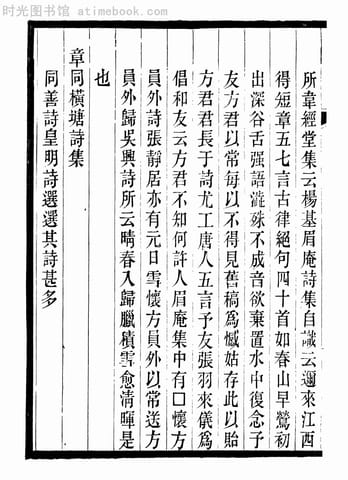 时光图书馆 atimebook.com
所韋經堂集云楊基眉庵詩集自識云邇來江西
得短章五七言古律絕句四十首如春山早鶯初
出深谷舌强語澁殊不成音欲棄置水中復念子
友方君以常每以不得見舊稿為憾姑存此以貽
方君君長于詩尤工唐人五言予友張羽來儀為
倡和友云方君不知何許人眉庵集中有口懷方
員外詩張靜居亦有元日雪懷方員外以常送方
員外歸吳興詩所云晴春入歸臘積雪愈清暉是
也
章同橫塘詩集
同善詩皇明詩選選其詩甚多